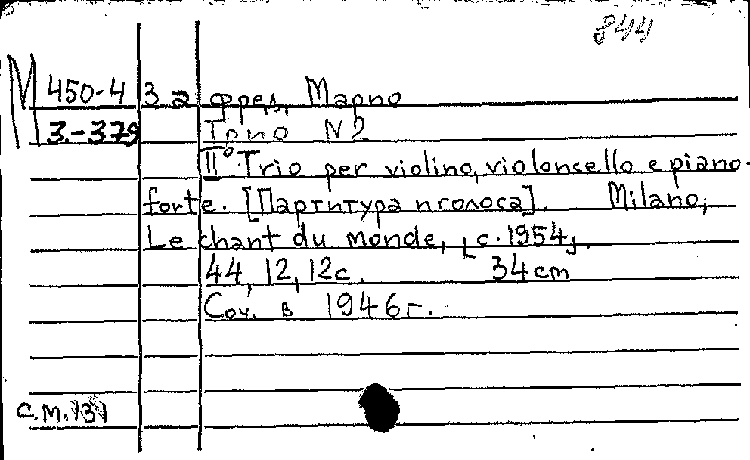 844
М 450-4 Зафред, Марио
3.-379 Трио N2
II° Trio per violino, violoncello e piano-
forte. [Партитура и голоса]. Milano,
Le chant du monde, [c. 1954].
44, 12, 12с. 34 cm
Соч. в 1946г.
С.М.131